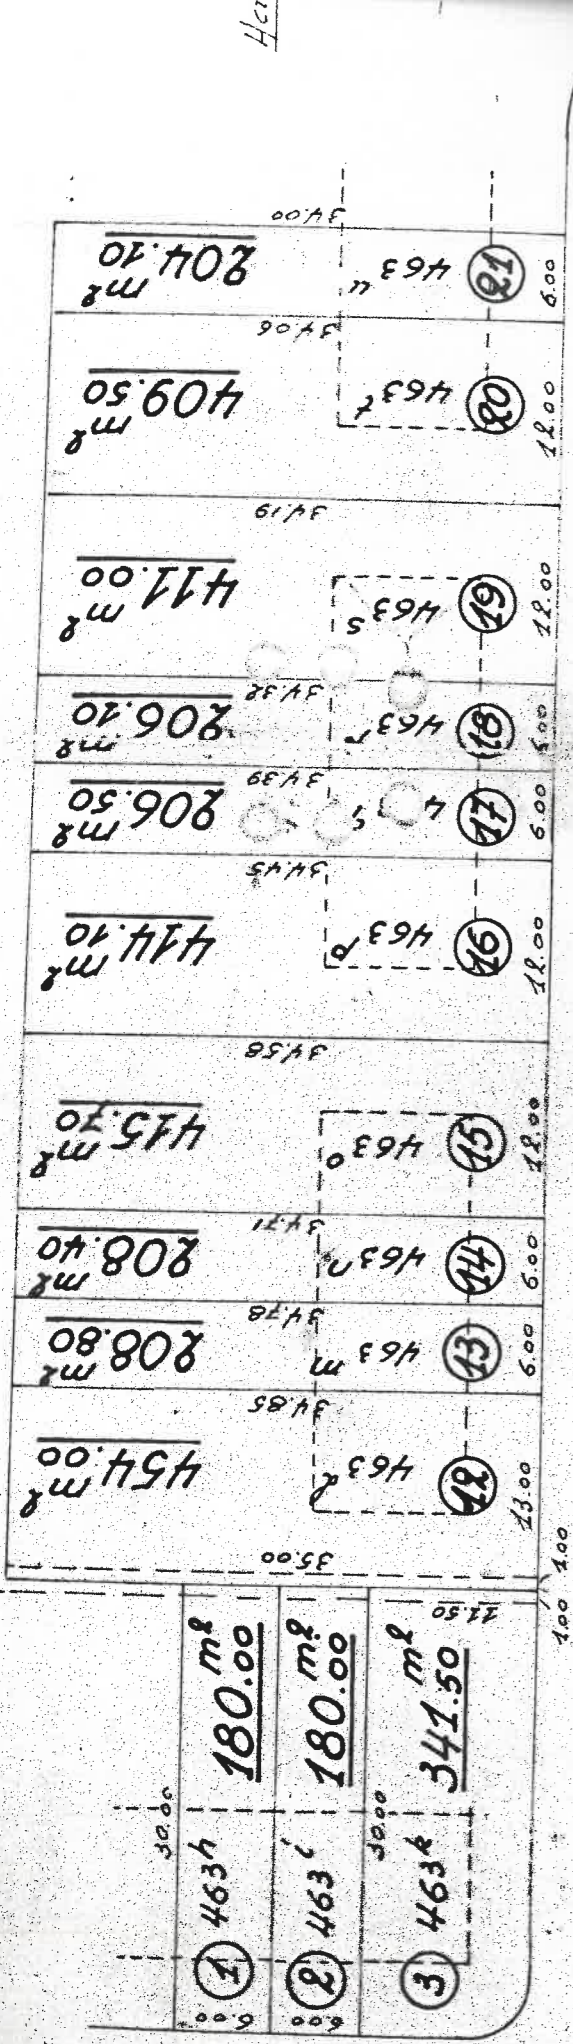 34.00
204.10 m²
463 u
21
6.00
34.06
409.50 m²
463 t
20
12.00
34.19
411.00 m²
463 s
19
12.00
34.32
206.10 m²
463 r
18
6.00
34.39
206.50 m²
4
17
6.00
34.45
414.10 m²
463 p
16
12.00
34.58
415.70 m²
463 o
15
12.00
34.71
208.40 m²
463 n
14
6.00
34.78
208.80 m²
463 m
13
6.00
34.85
454.00 m²
463 l
12
13.00
35.00
1.00
1.00
11.50
30.00
180.00 m²
463 h
1
6.00
180.00 m²
463 i
2
6.00
30.00
341.50 m²
463 k
3